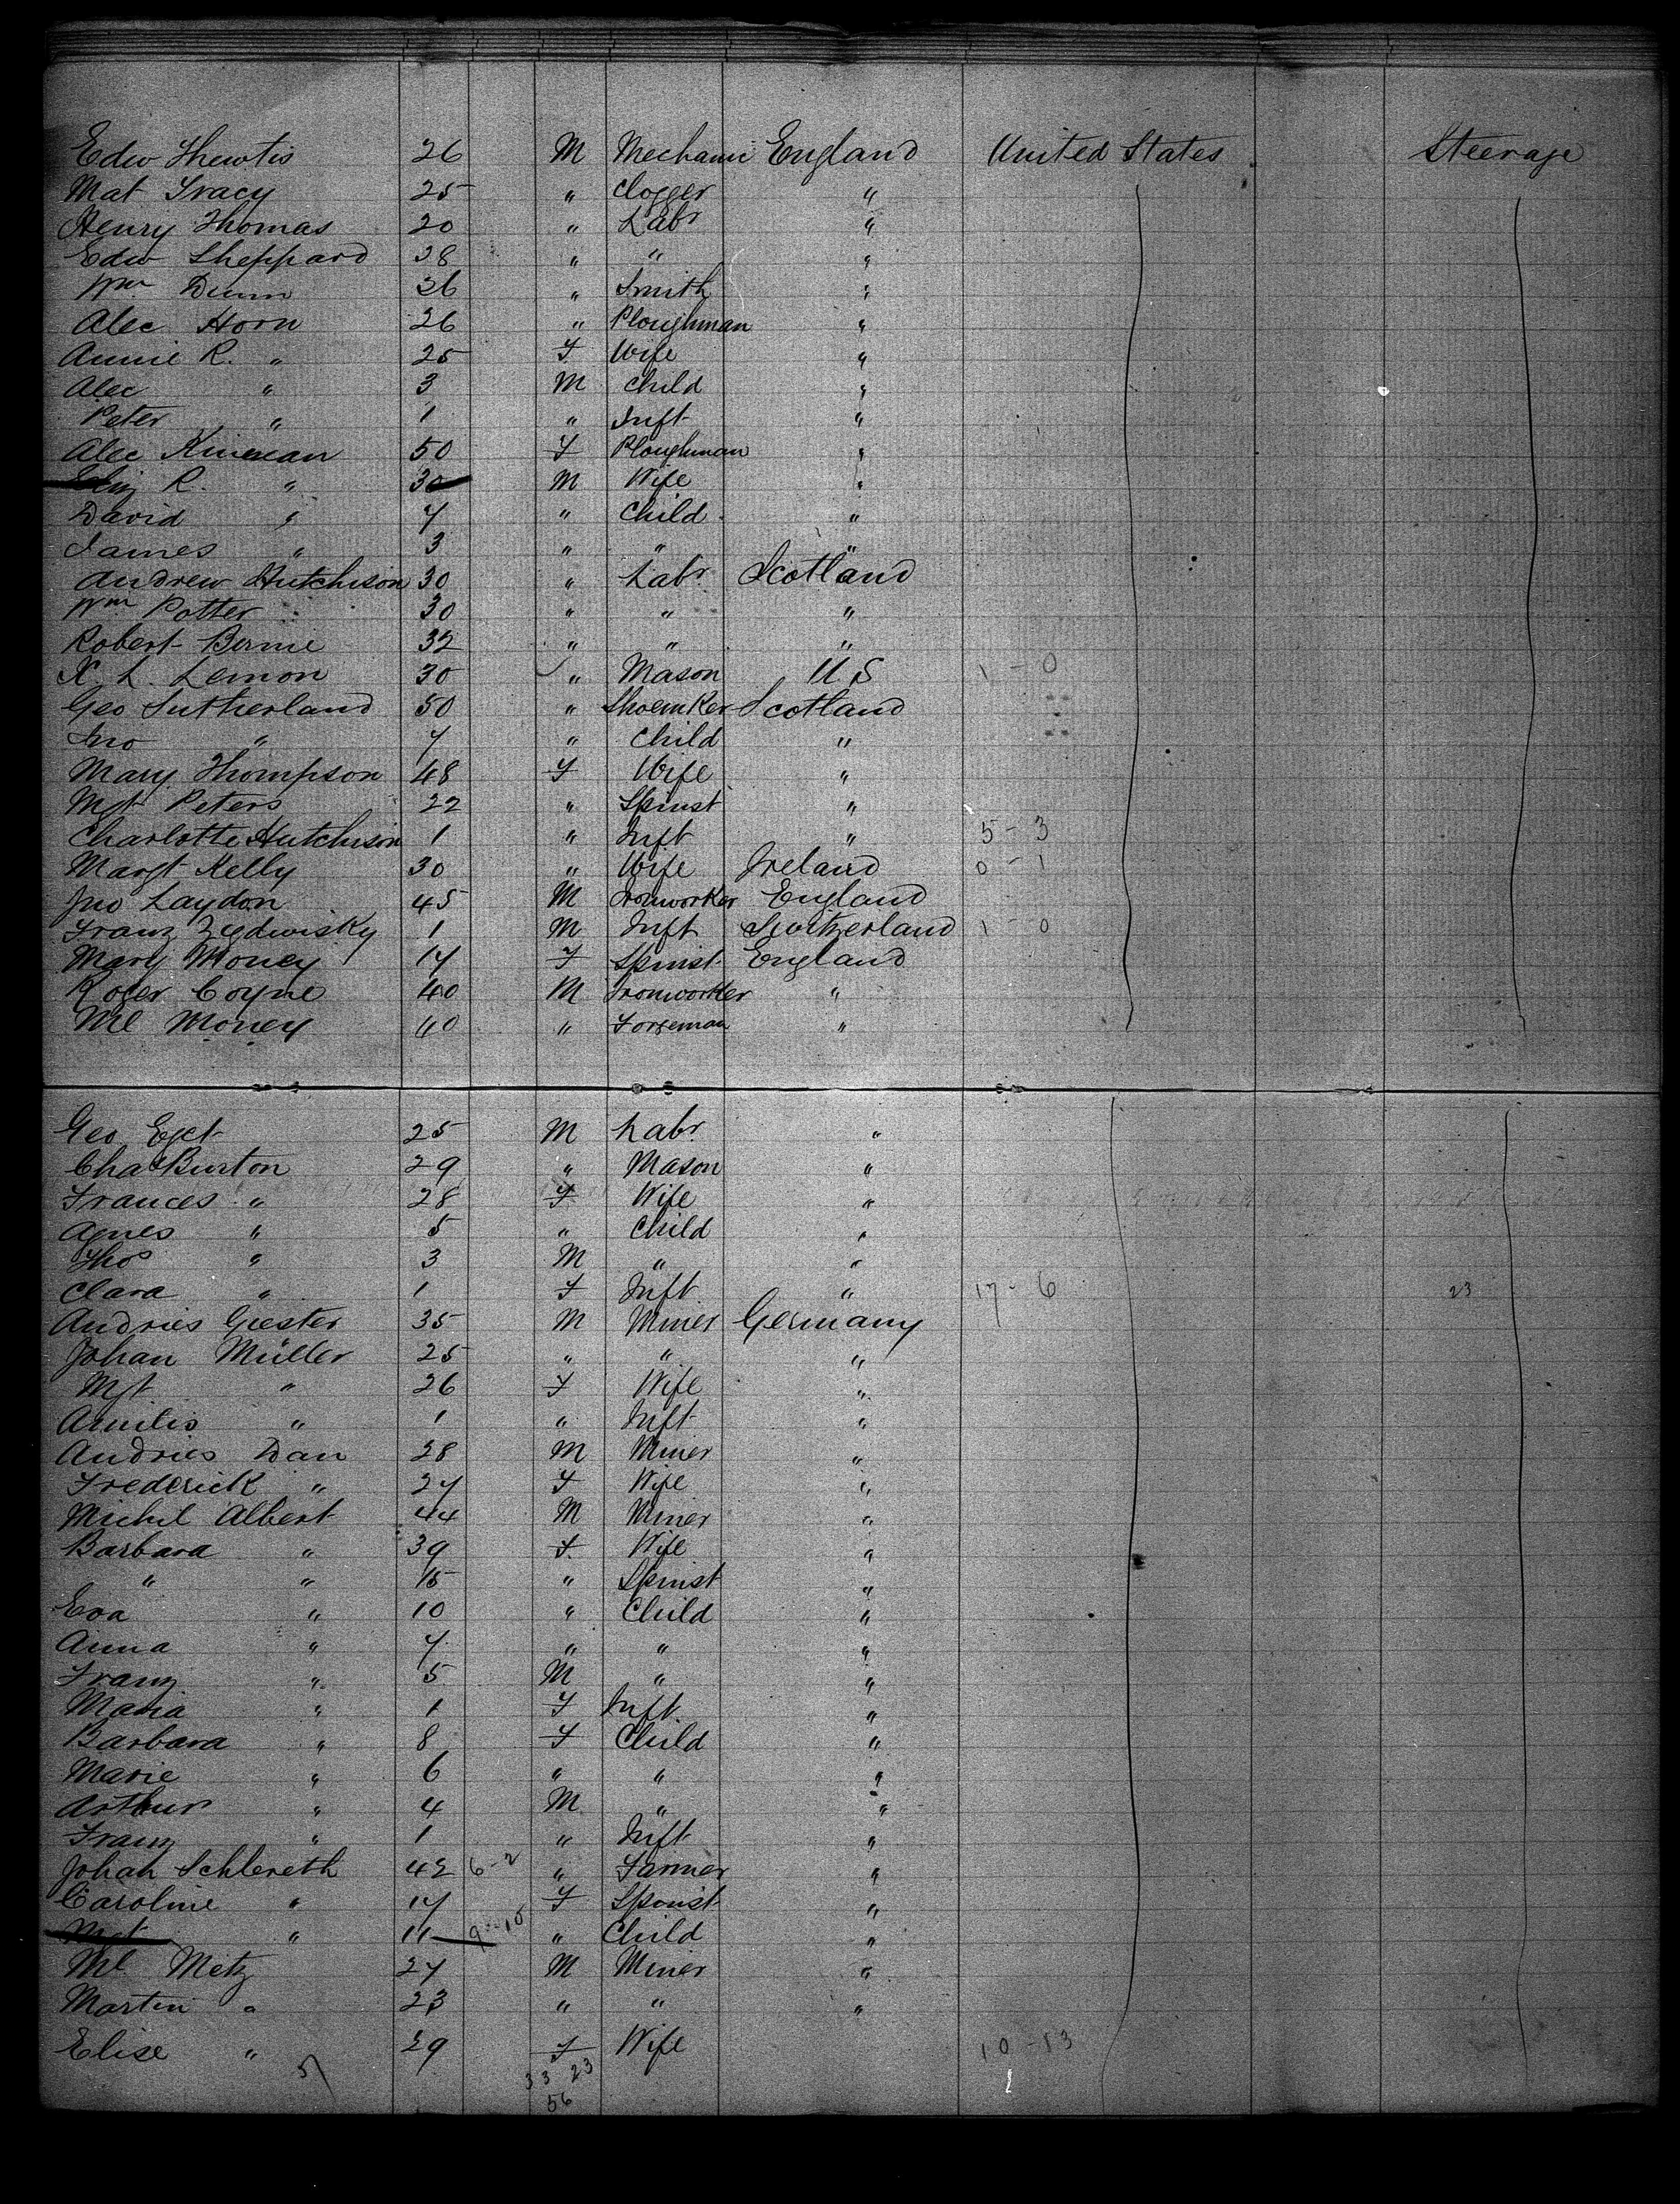 Edw Thewtis 26 M Mechanic England United States Steerage
Mat Tracy 25 " Clogger "
Henry Thomas 20 " Labr "
Edw Sheppard 38 " " "
Wm Dunn 36 " Smith "
Alec Horn 26 " Ploughman "
Annie R. " 25 F Wife "
Alec " 3 M Child "
Peter " 1 " Inft "
Alec Kinexan 50 F Ploughman "
R. " 30 M Wife "
David " 7 " Child "
James " 3 " " "
Andrew Hutchison 30 " Labr Scotland
Wm Potter 30 " " "
Robert Birnie 32 " " "
L. Lemon 30 " Mason U S 1 - 0
Geo Sutherland 50 " Shoemker Scotland
Jno " 7 " Child "
Mary Thompson 48 F Wife "
Mgt Peters 22 " Spinst "
Charlotte Hutchison 1 " Inft " 5 - 3
Margt Kelly 30 " Wife Ireland 0 - 1
Jno Laydon 45 M Ironworker England
Franz Zygdwisky 1 M Inft Switzerland 1 - 0
Mary Money 17 F Spinst England
Roger Coyne 40 M Ironworker "
Ml Money 40 " Forgeman "
Geo 25 M Labr "
Chas Burton 29 " Mason "
Frances " 28 F Wife "
Agnes " 5 " Child "
Thos " 3 M " "
Clara " 1 F Inft " 17 - 6 23
Andries Giester 35 M Miner Germany
Johan Müller 25 " " "
Mgt " 26 F Wife "
" 1 " Inft "
Andries Dan 28 M Miner "
Frederick " 27 F Wife "
Michil Albert 44 M Miner "
Barbara " 39 F Wife "
" " 15 " Spinst "
Eva " 10 " Child "
Anna " 7 " " "
Franz " 5 M " "
Maria " 1 F Inft "
Barbara " 8 F Child "
Marie " 6 " " "
Arthur " 4 M " "
Franz " 1 " Inft "
Johan Schlereth 42 6-2 " Farmer "
Caroline " 17 F Spinst "
Mgt " 11 9-10 " Child "
Ml Metz 27 M Miner "
Martin " 23 " " "
Elise " 29 F Wife 10 - 13
33 23
56